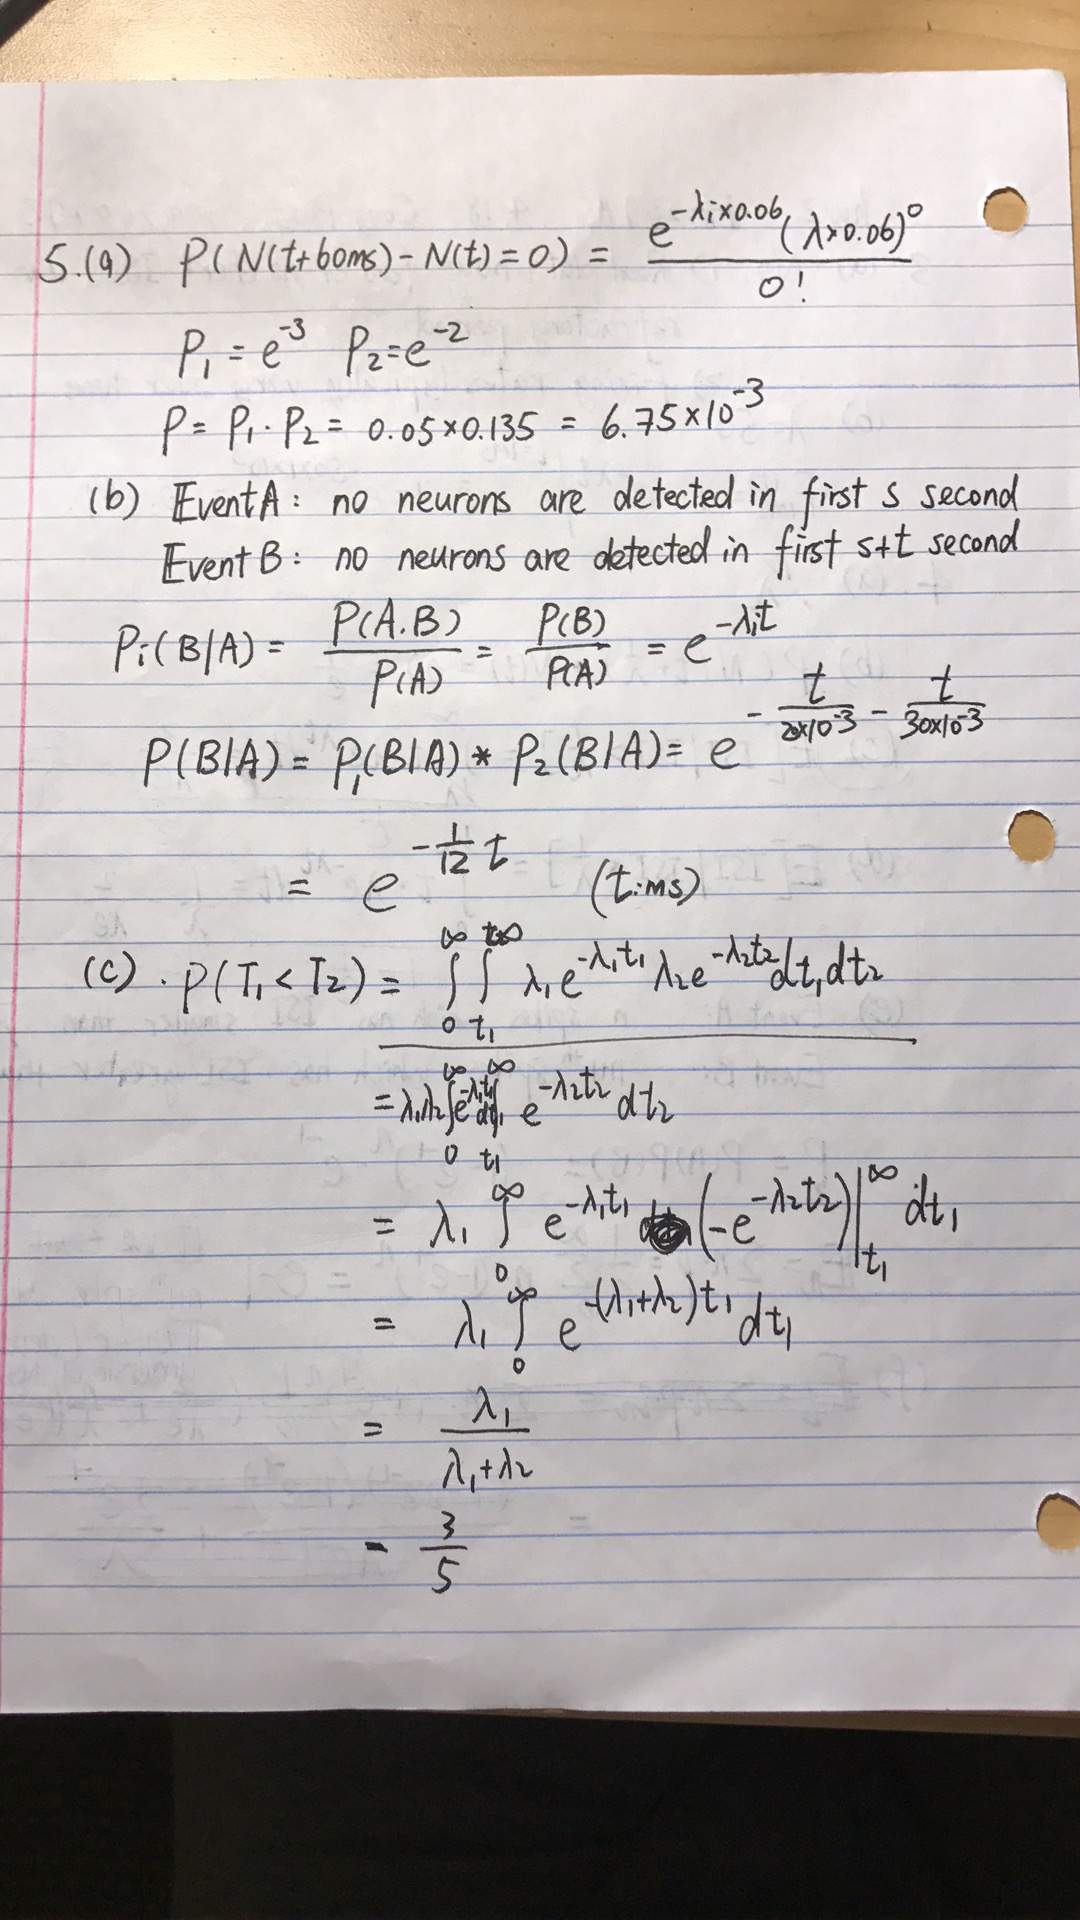 5.(a) P(N(t+60ms)-N(t)=0) = e^{-λi×0.06}(λ×0.06)^0 / 0!
P₁ = e^{-3} P₂=e^{-2}
P= P₁·P₂ = 0.05×0.135 = 6.75×10^{-3}
(b) Event A: no neurons are detected in first s second
Event B: no neurons are detected in first s+t second
Pi(B|A) = P(A.B)/P(A) = P(B)/P(A) = e^{-λit}
P(B|A) = P₁(B|A) * P₂(B|A) = e^{-t/(20×10^{-3}) - t/(30×10^{-3})}
= e^{-1/12 t} (t:ms)
(c). P(T₁<T₂) = ∫_0^∞ ∫_{t₁}^∞ λ₁e^{-λ₁t₁} λ₂e^{-λ₂t₂}dt₁dt₂
= λ₁λ₂∫_0^∞ e^{-λ₁t₁}dt₁ ∫_{t₁}^∞ e^{-λ₂t₂} dt₂
= λ₁ ∫_0^∞ e^{-λ₁t₁} (-e^{-λ₂t₂})|_{t₁}^∞ dt₁
= λ₁ ∫_0^∞ e^{-(λ₁+λ₂)t₁} dt₁
= λ₁/(λ₁+λ₂)
= 3/5